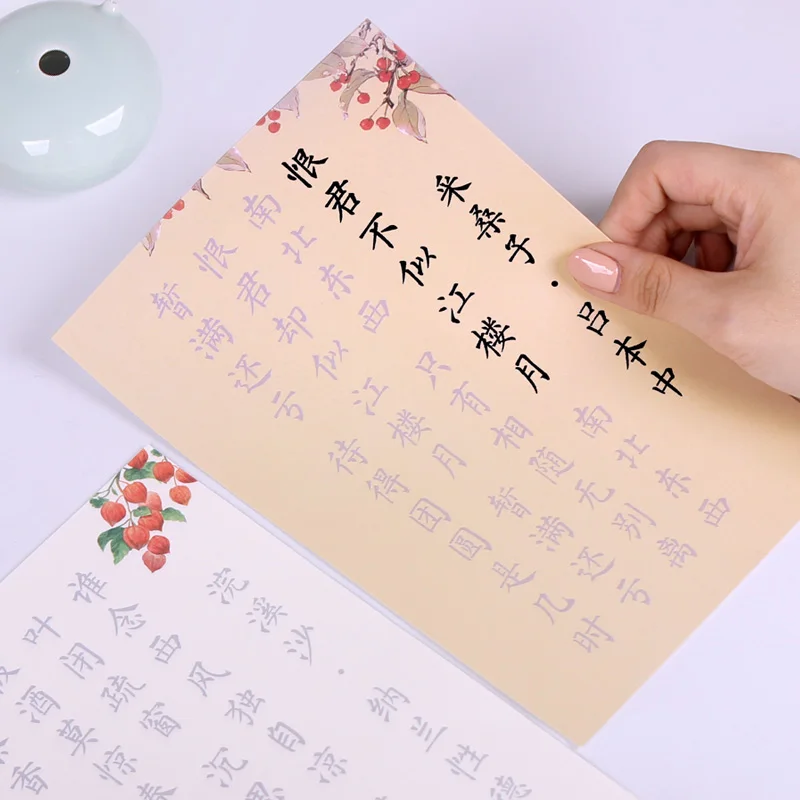 采桑子·吕本中
恨君不似江楼月 南北东西
南北东西 只有相随无别离
恨君却似江楼月 暂满还亏
暂满还亏 待得团圆是几时
浣溪沙·纳兰性德
谁念西风独自凉
叶闭疏窗 沉思
被酒莫惊春
香